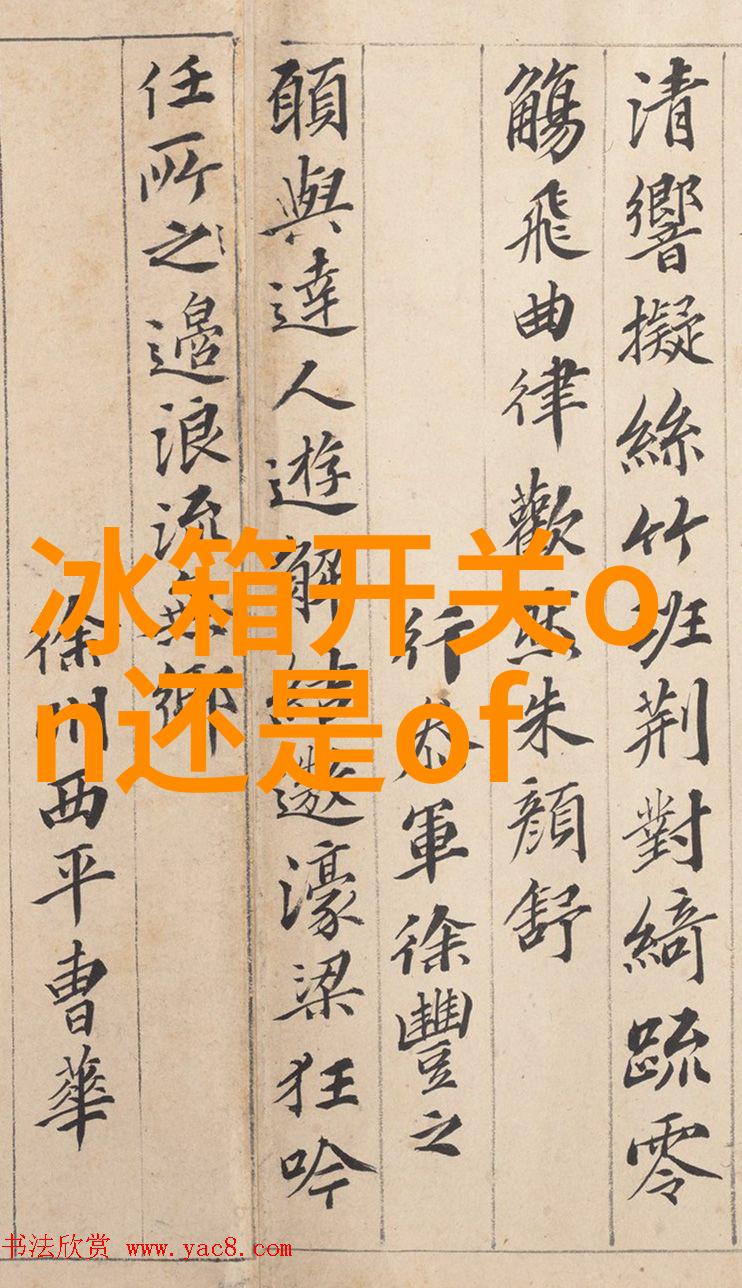 清響擬絲竹班荆對綺䟽零
觴飛曲律歡然朱顏舒
行叅軍徐豐之
願與達人遊解結遨濠梁狂吟
任所之邉浪流無鄉
徐州西平曹華
冰箱开关o
n还是of
书法欣赏 www.yac8.com